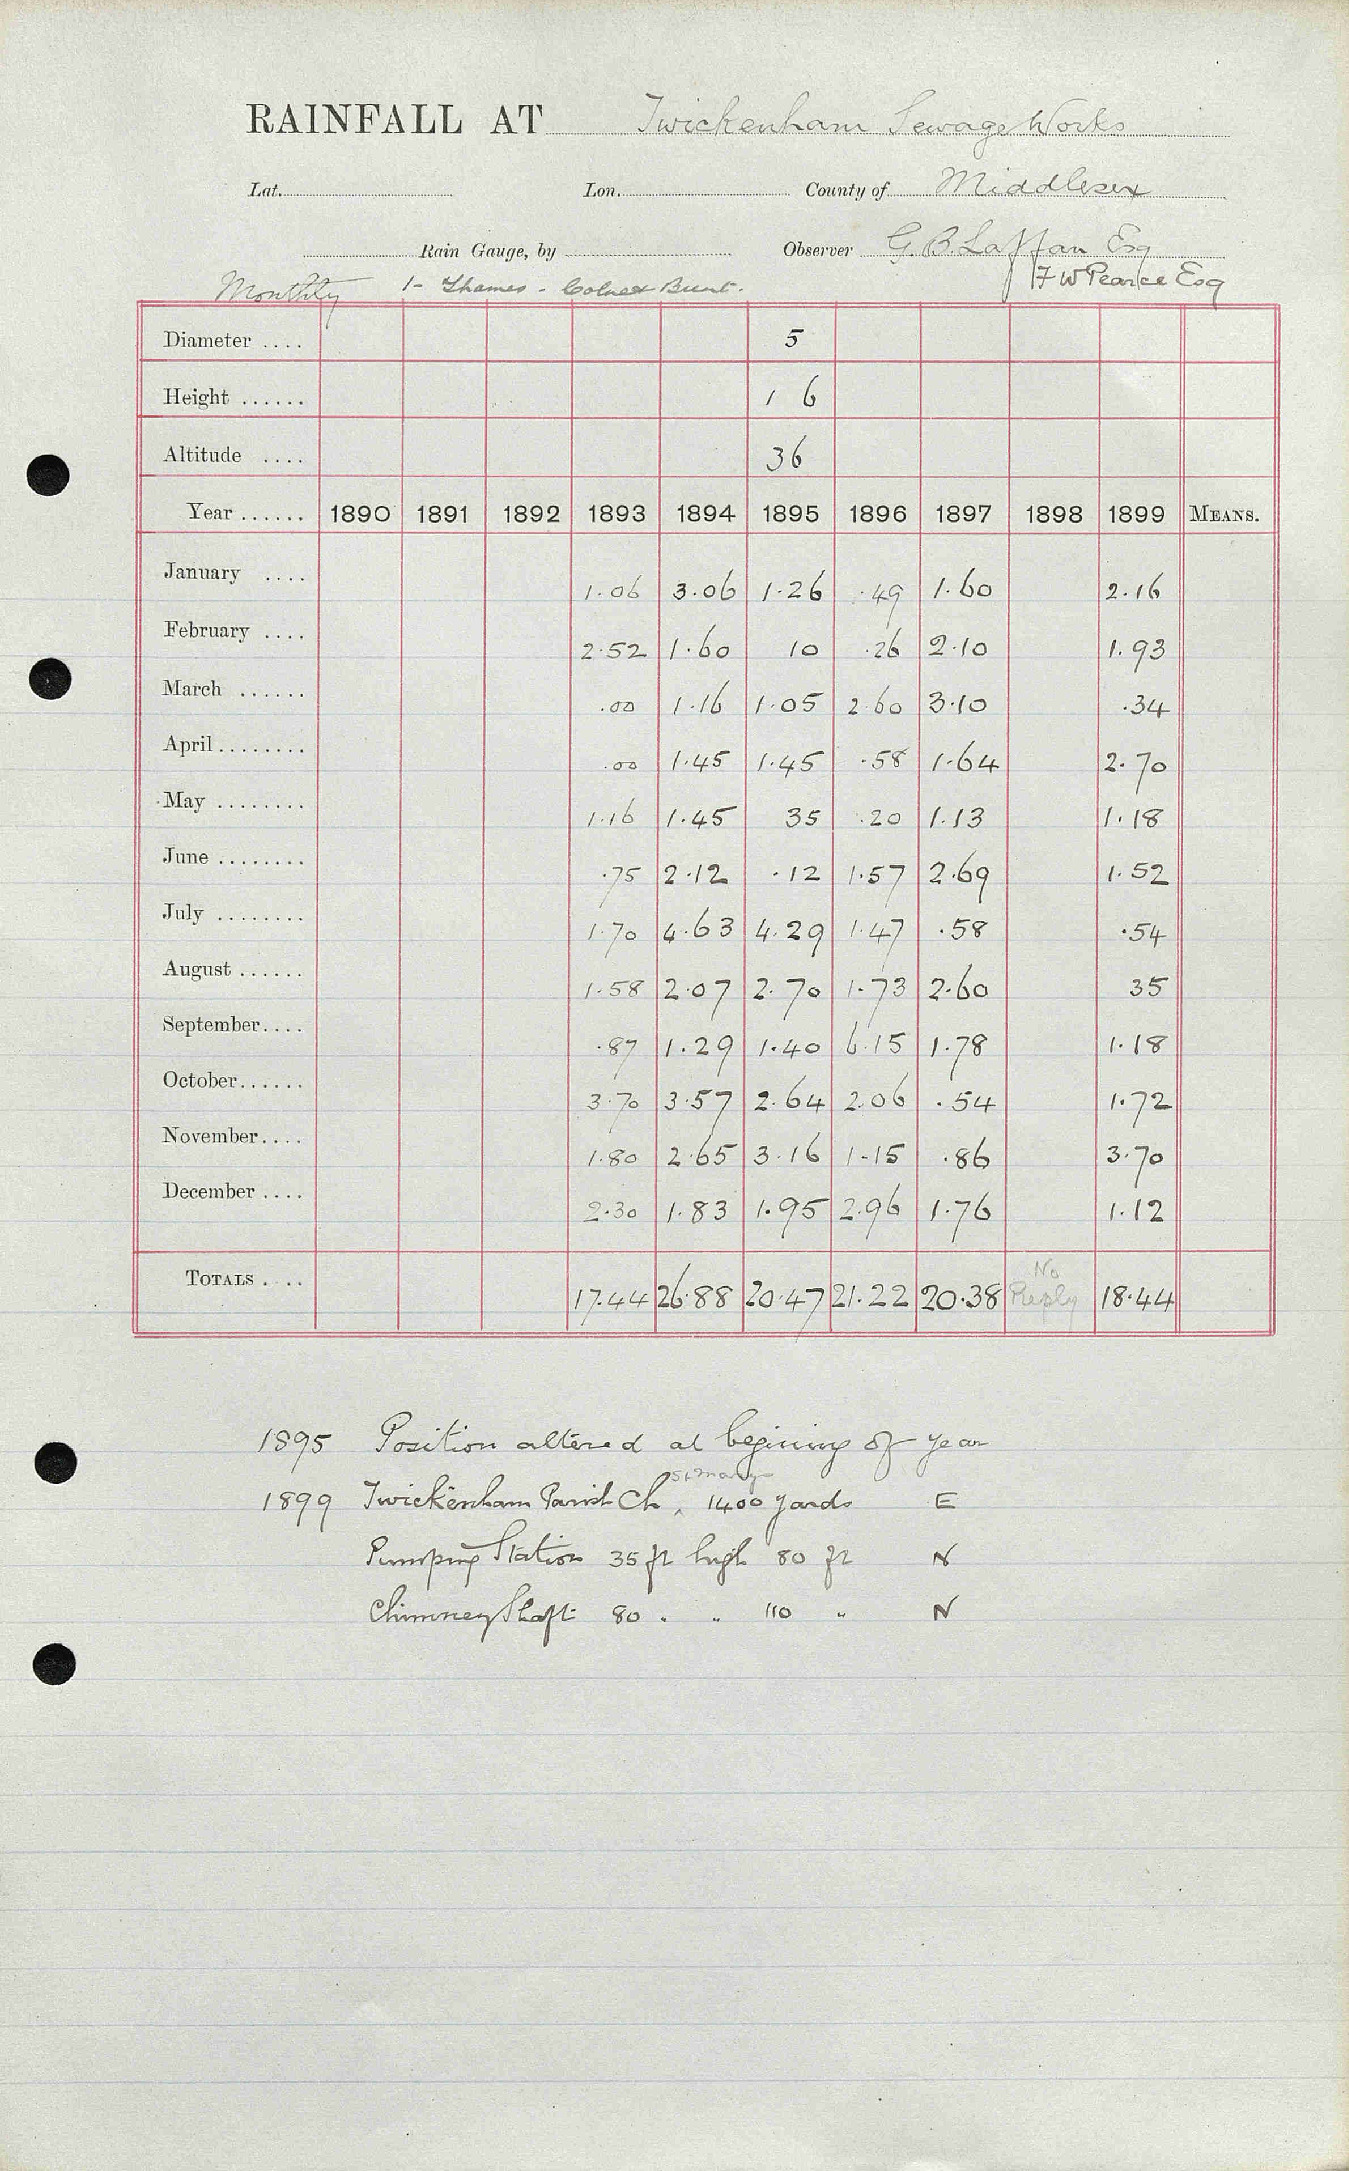 RAINFALL AT Twickenham Sewage Works
Lat. Lon. County of Middlesex
Rain Gauge, by Observer G. B. Laffan Esq
F W Pearce Esq
Monthly 1- Thames - Colne & Brent.
Diameter .... 5
Height ...... 1 6
Altitude .... 36
Year ...... 1890 1891 1892 1893 1894 1895 1896 1897 1898 1899 MEANS.
January .... 1.06 3.06 1.26 .49 1.60 2.16
February .... 2.52 1.60 10 .26 2.10 1.93
March ...... .00 1.16 1.05 2.60 3.10 .34
April ........ .00 1.45 1.45 .58 1.64 2.70
May ........ 1.16 1.45 35 .20 1.13 1.18
June ........ .75 2.12 .12 1.57 2.69 1.52
July ........ 1.70 4.63 4.29 1.47 .58 .54
August ...... 1.58 2.07 2.70 1.73 2.60 35
September.... .87 1.29 1.40 6.15 1.78 1.18
October...... 3.70 3.57 2.64 2.06 .54 1.72
November.... 1.80 2.65 3.16 1.15 .86 3.70
December .... 2.30 1.83 1.95 2.96 1.76 1.12
TOTALS .... 17.44 26.88 20.47 21.22 20.38 No Reply 18.44
1895 Position altered at begining of year
St Marys
1899 Twickenham Parish Ch, 1400 yards E
Pumping Station 35 ft high 80 ft N
Chimney Shaft 80 " " 110 " N